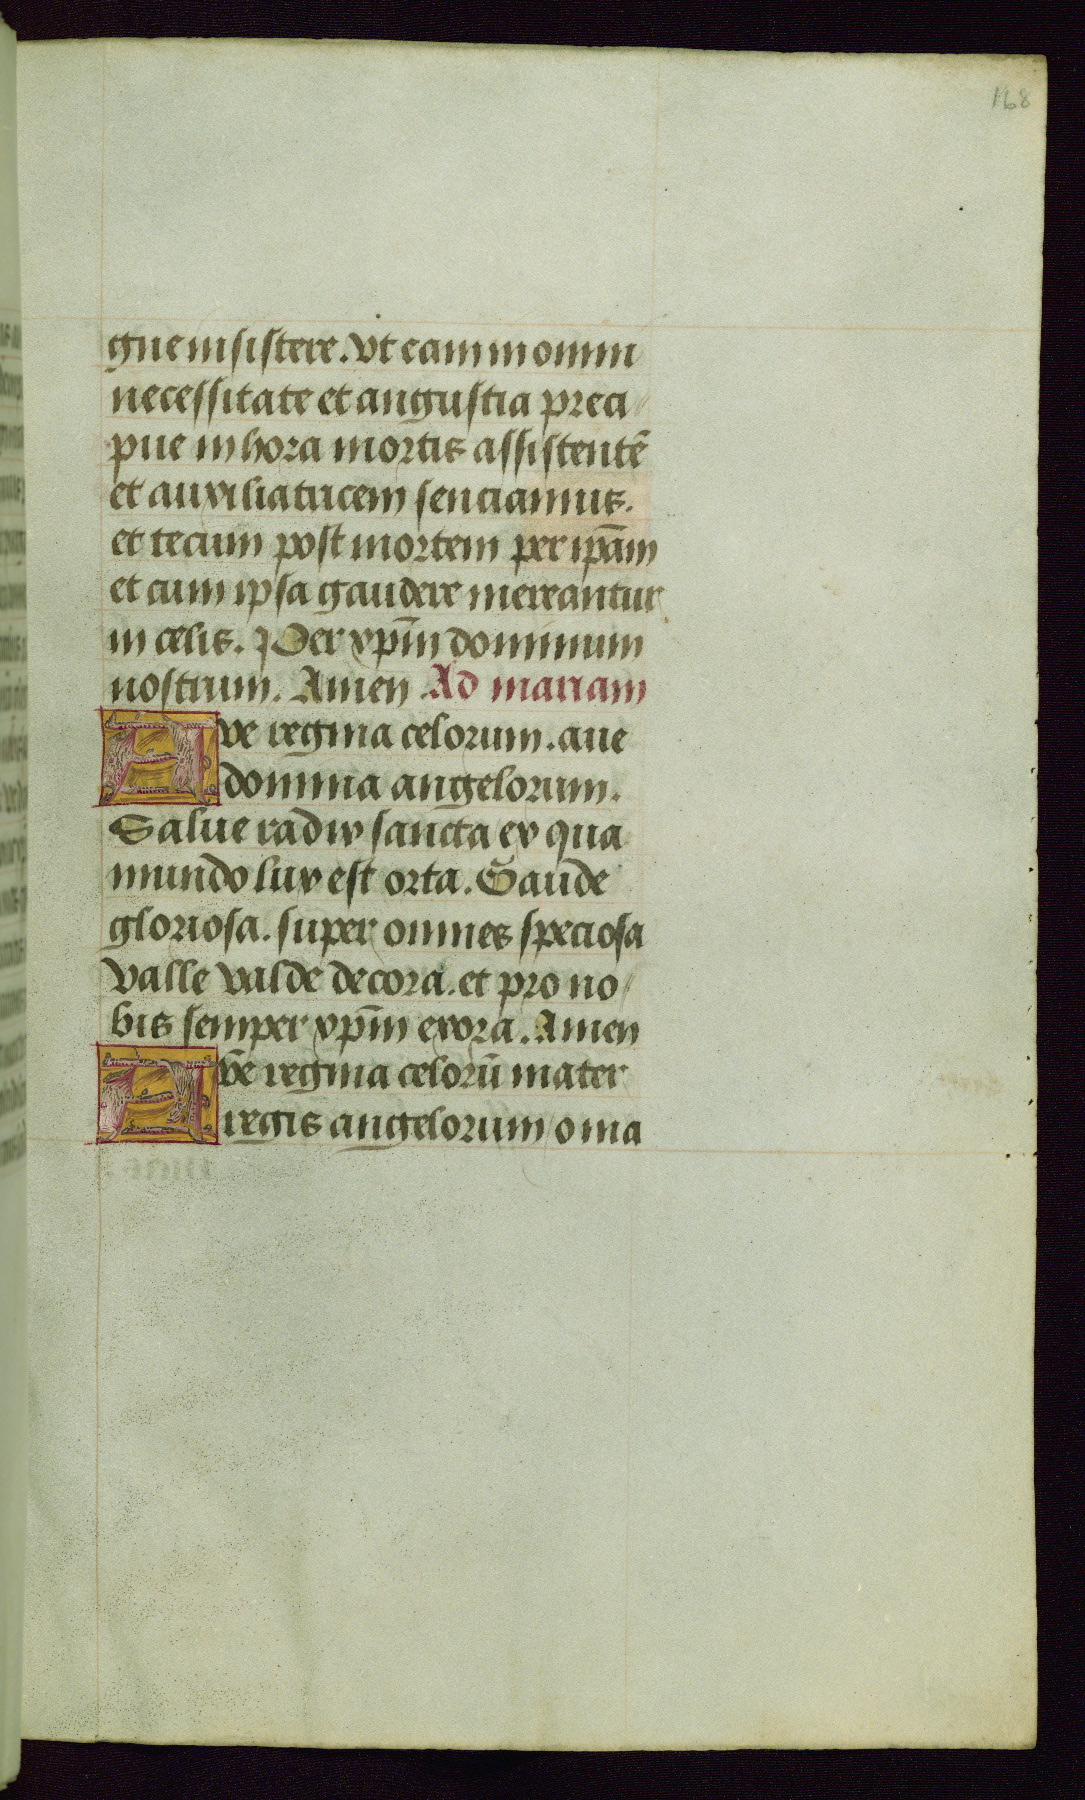 168
gne insistere. vt eam in omni
necessitate et angustia preci
pue in hora mortis assistentē
et auxiliatricem senciamus.
et tecum post mortem per ipām
et cum ipsa gaudere mereantur
in celis. Per xpīm dominum
nostrum. Amen Ad mariam
Ave regina celorum. aue
domina angelorum.
Salue radix sancta ex qua
mundo lux est orta. Gaude
gloriosa. super omnes speciosa
Valle valde decora. et pro no
bis semper xpīm exora. Amen
Ave regina celorū mater
regis angelorum o ma